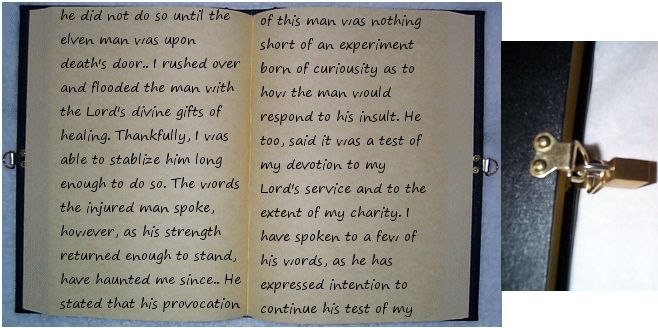 he did not do so until the
elven man was upon
death's door.. I rushed over
and flooded the man with
the Lord's divine gifts of
healing. Thankfully, I was
able to stablize him long
enough to do so. The words
the injured man spoke,
however, as his strength
returned enough to stand,
have haunted me since.. He
stated that his provocation
of this man was nothing
short of an experiment
born of curiousity as to
how the man would
respond to his insult. He
too, said it was a test of
my devotion to my
Lord's service and to the
extent of my charity. I
have spoken to a few of
his words, as he has
expressed intention to
continue his test of my